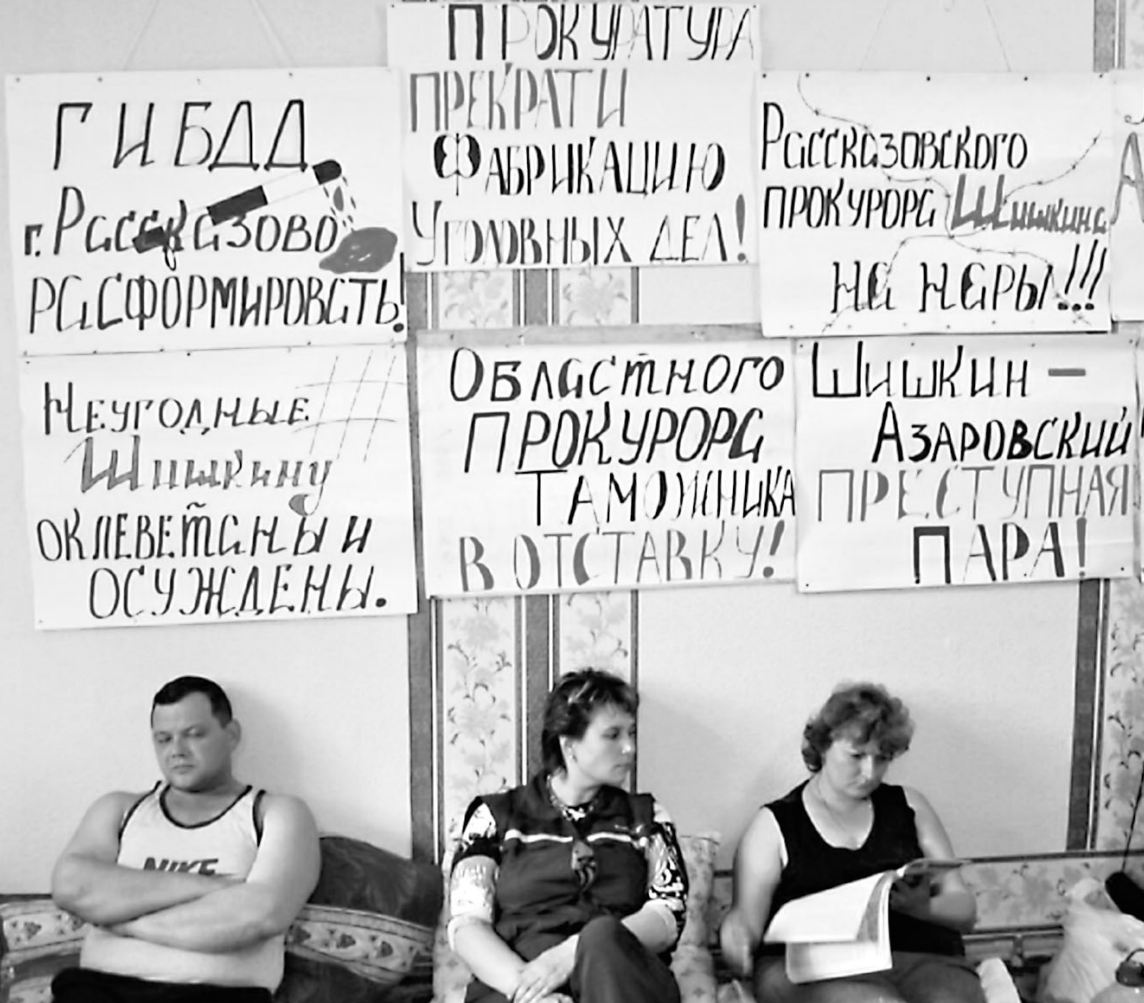 ГИБДД
г. Рассказово
расформировать!
Прокуратура
прекрати
фабрикацию
уголовных дел!
Рассказовского
прокурора Шишкина
на нары!!!
Неугодные
Шишкину
оклеветаны и
осуждены.
Областного
прокурора
Таможника
в отставку!
Шишкин –
Азаровский
преступная
пара!
NIKE